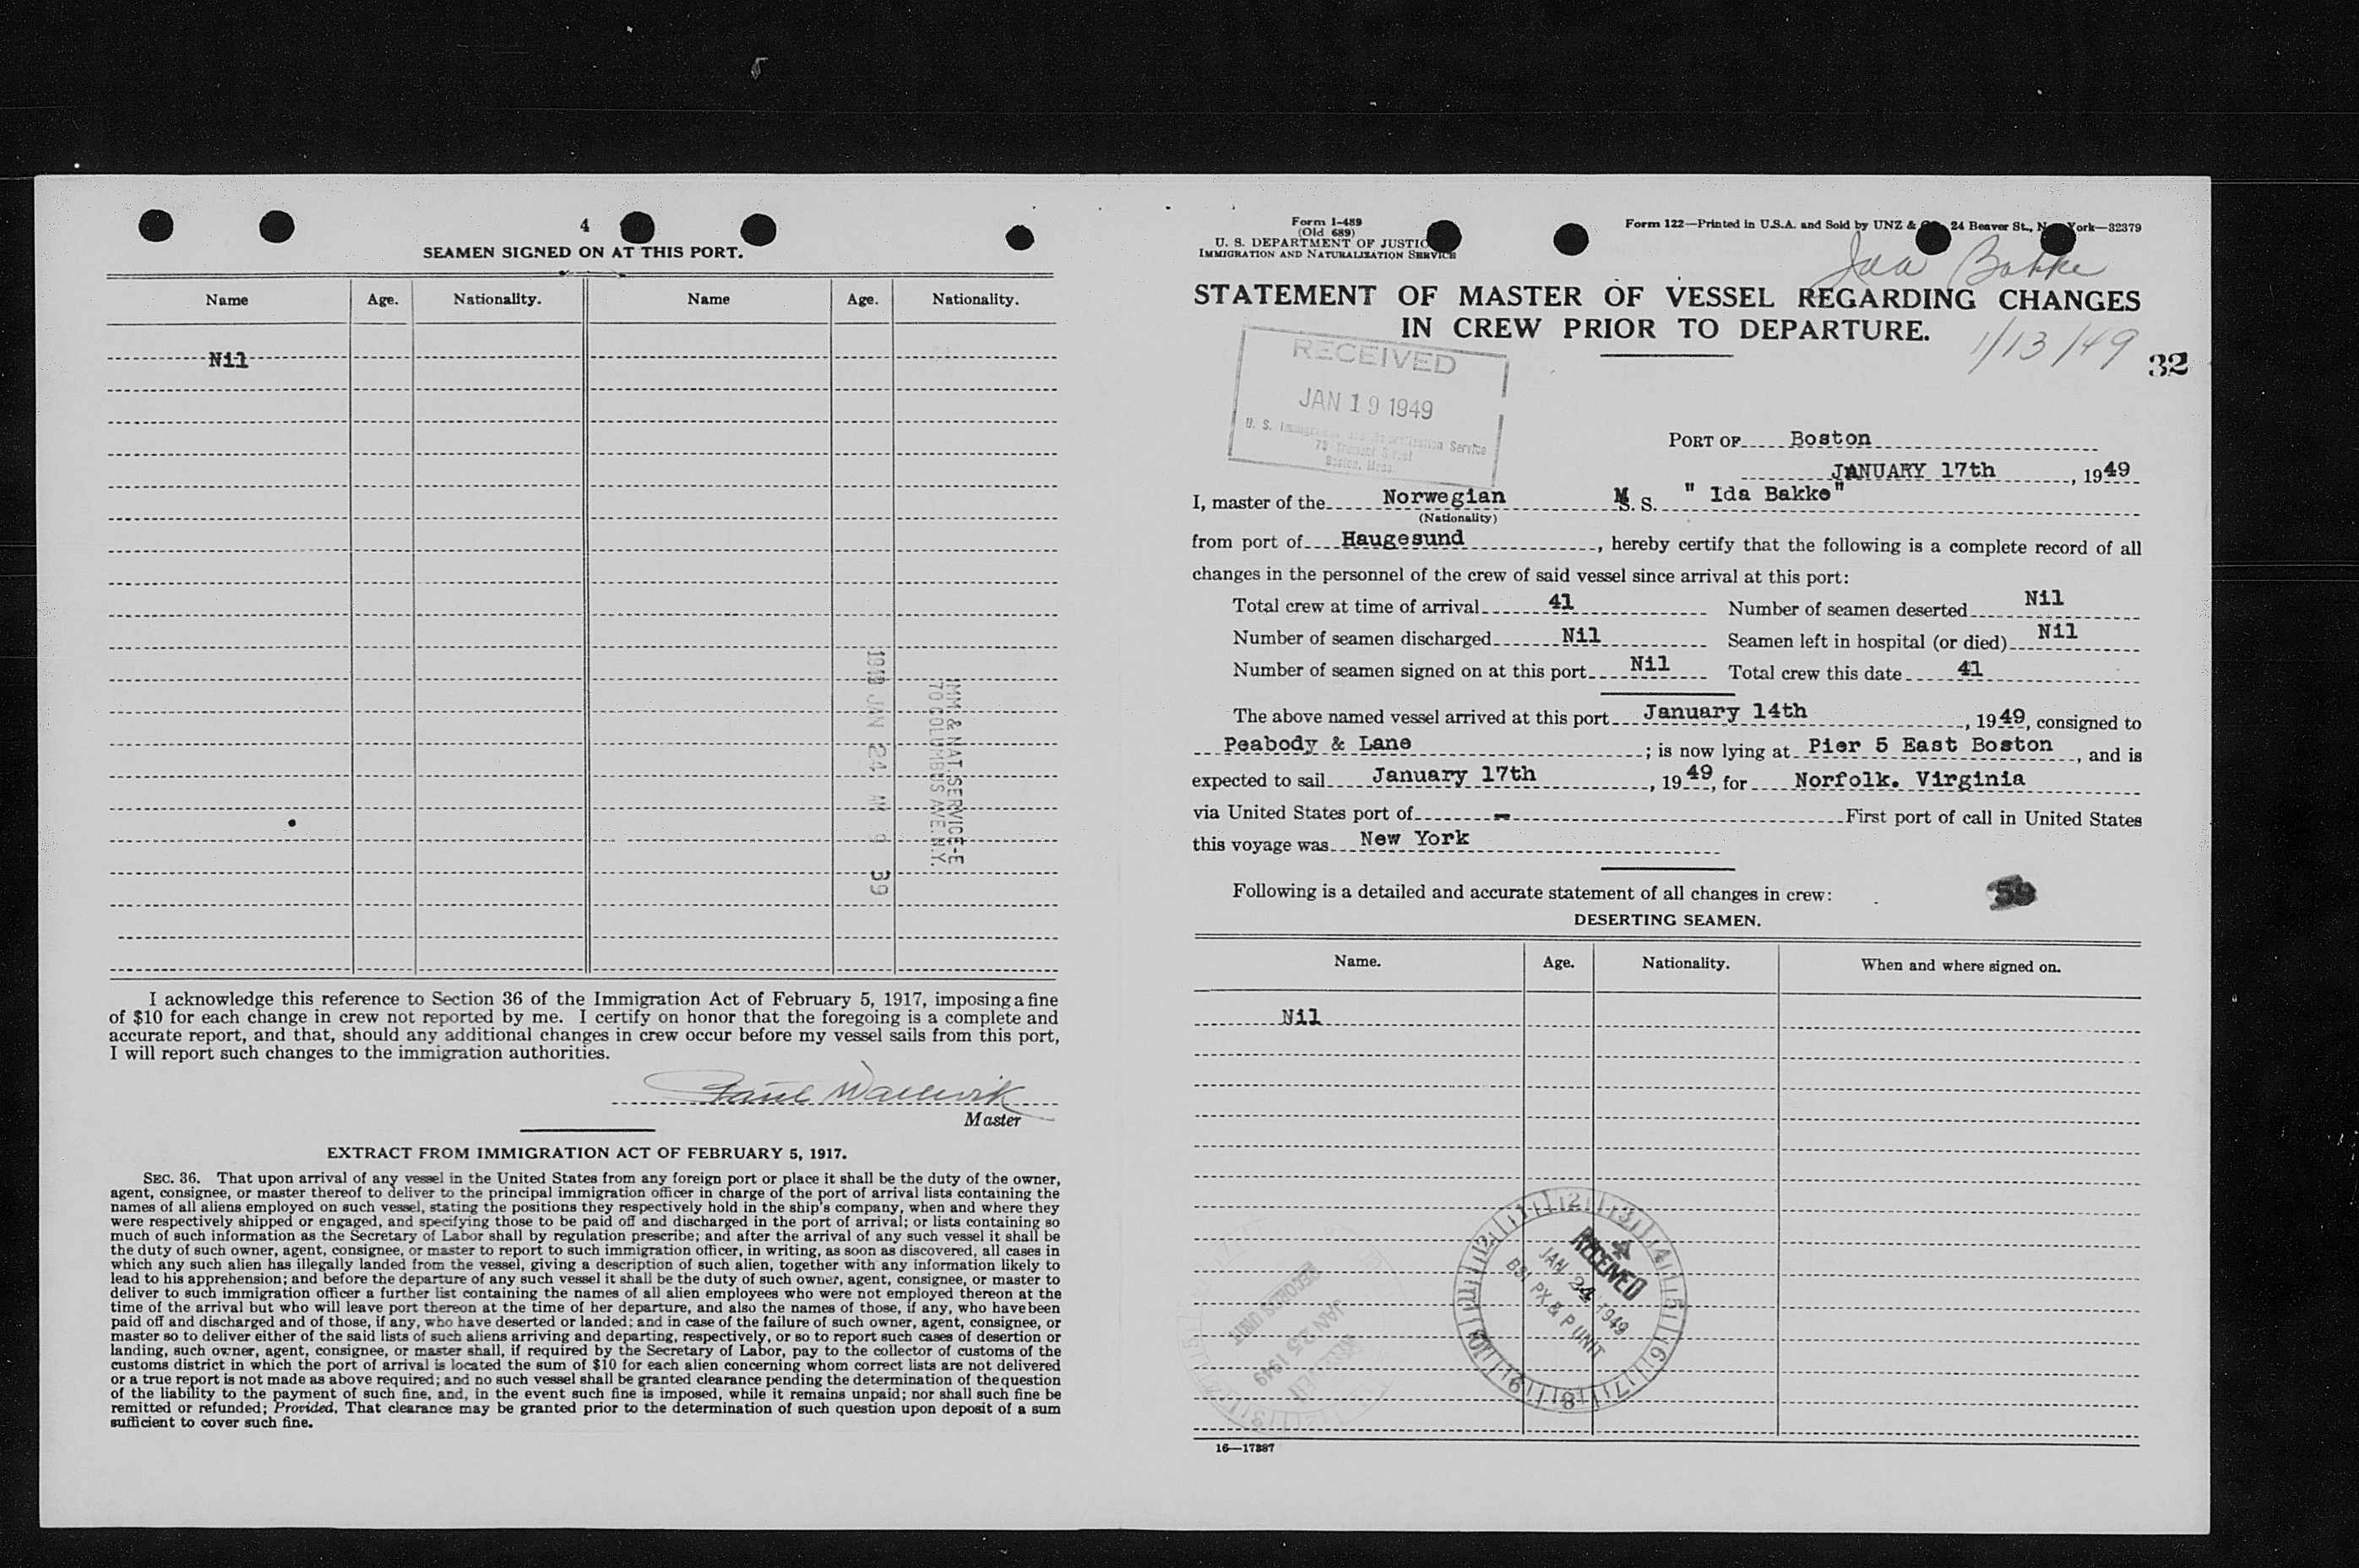 4
SEAMEN SIGNED ON AT THIS PORT.
Name Age. Nationality. Name Age. Nationality.
Nil
1949 JAN 24 AM 9 39
IMM & NAT. SERVICE-E
70 COLUMBUS AVE. N.Y.
I acknowledge this reference to Section 36 of the Immigration Act of February 5, 1917, imposing a fine
of $10 for each change in crew not reported by me. I certify on honor that the foregoing is a complete and
accurate report, and that, should any additional changes in crew occur before my vessel sails from this port,
I will report such changes to the immigration authorities.
Paul Wallevik
Master
EXTRACT FROM IMMIGRATION ACT OF FEBRUARY 5, 1917.
SEC. 36. That upon arrival of any vessel in the United States from any foreign port or place it shall be the duty of the owner,
agent, consignee, or master thereof to deliver to the principal immigration officer in charge of the port of arrival lists containing the
names of all aliens employed on such vessel, stating the positions they respectively hold in the ship's company, when and where they
were respectively shipped or engaged, and specifying those to be paid off and discharged in the port of arrival; or lists containing so
much of such information as the Secretary of Labor shall by regulation prescribe; and after the arrival of any such vessel it shall be
the duty of such owner, agent, consignee, or master to report to such immigration officer, in writing, as soon as discovered, all cases in
which any such alien has illegally landed from the vessel, giving a description of such alien, together with any information likely to
lead to his apprehension; and before the departure of any such vessel it shall be the duty of such owner, agent, consignee, or master to
deliver to such immigration officer a further list containing the names of all alien employees who were not employed thereon at the
time of the arrival but who will leave port thereon at the time of her departure, and also the names of those, if any, who have been
paid off and discharged and of those, if any, who have deserted or landed; and in case of the failure of such owner, agent, consignee, or
master so to deliver either of the said lists of such aliens arriving and departing, respectively, or so to report such cases of desertion or
landing, such owner, agent, consignee, or master shall, if required by the Secretary of Labor, pay to the collector of customs of the
customs district in which the port of arrival is located the sum of $10 for each alien concerning whom correct lists are not delivered
or a true report is not made as above required; and no such vessel shall be granted clearance pending the determination of the question
of the liability to the payment of such fine, and, in the event such fine is imposed, while it remains unpaid; nor shall such fine be
remitted or refunded; Provided, That clearance may be granted prior to the determination of such question upon deposit of a sum
sufficient to cover such fine.
Form I-489
(Old 689)
U. S. DEPARTMENT OF JUSTIC
IMMIGRATION AND NATURALIZATION SERVICE
Form 122—Printed in U.S.A. and Sold by UNZ & 24 Beaver St., N ork—32379
Ida Bakke
STATEMENT OF MASTER OF VESSEL REGARDING CHANGES
IN CREW PRIOR TO DEPARTURE.
1/13/49
32
RECEIVED
JAN 19 1949
U. S. Immigration and Naturalization Service
73 Tremont Street
Boston, Mass.
PORT OF Boston
JANUARY 17th, 1949
I, master of the Norwegian M S. S. " Ida Bakke"
(Nationality)
from port of Haugesund, hereby certify that the following is a complete record of all
changes in the personnel of the crew of said vessel since arrival at this port:
Total crew at time of arrival 41 Number of seamen deserted Nil
Number of seamen discharged Nil Seamen left in hospital (or died) Nil
Number of seamen signed on at this port Nil Total crew this date 41
The above named vessel arrived at this port January 14th, 1949, consigned to
Peabody & Lane; is now lying at Pier 5 East Boston, and is
expected to sail January 17th, 1949, for Norfolk. Virginia
via United States port of - First port of call in United States
this voyage was New York
Following is a detailed and accurate statement of all changes in crew:
DESERTING SEAMEN.
Name. Age. Nationality. When and where signed on.
Nil
RECEIVED
JAN 24 1949
BSI PX & P UNIT
RECORDS UNIT
JAN 25 1949
16—17887